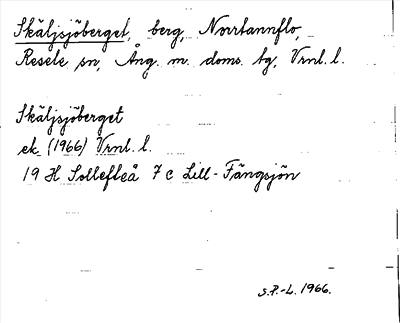 Skäljsjöberget, berg, Norrtannflo,
Resele sn, Ång. m. doms. tg, Vrnl. l.
Skäljsjöberget
ek. (1966) Vrnl. l.
19 H Sollefteå 7 c Lill-Fängsjön
S.P.-L. 1966.